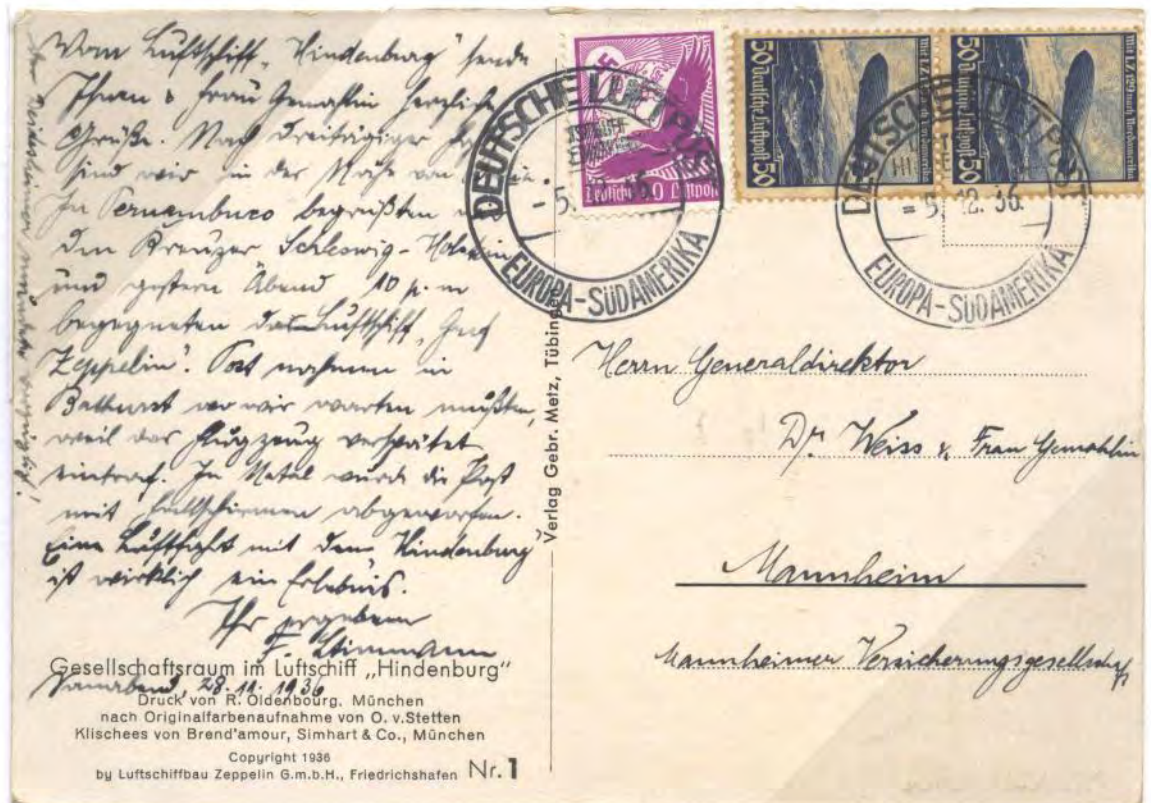 Vom Luftschiff „Hindenburg“ sende
Ihnen & Frau Gemahlin herzliche
Grüße. Nach dreitägiger
sind wir in der Nähe von
In Pernambuco begrüßten
den Kreuzer Schleswig-Holstein
und gestern Abend 10 p.m
begegneten das Luftschiff „Graf
Zeppelin“. Post nahmen in
Bathurst wo wir warten mußten,
weil das Flugzeug verspätet
eintraf. In Natal wurde die Post
mit Fallschirmen abgeworfen.
Eine Luftfahrt mit dem „Hindenburg“
ist wirklich ein Erlebnis.
Ihr ergebener
F.
Gesellschaftsraum im Luftschiff „Hindenburg“
28.11.1936
Druck von R. Oldenbourg, München
nach Originalfarbenaufnahme von O. v. Stetten
Klischees von Brend'amour, Simhart & Co., München
Copyright 1936
by Luftschiffbau Zeppelin G.m.b.H., Friedrichshafen Nr. 1
Verlag Gebr. Metz, Tübingen
Deutsche Luftpost
50 Deutsche Luftpost 50
50 Deutsche Luftpost 50
Mit LZ 129 nach Nordamerika
Mit LZ 129 nach Nordamerika
DEUTSCHE LUFTPOST
EUROPA-SÜDAMERIKA
DEUTSCHE LUFTPOST
5.12.36.
EUROPA-SÜDAMERIKA
Herrn Generaldirektor
Dr. Weiss & Frau Gemahlin
Mannheim
Mannheimer Versicherungsgesellschaft